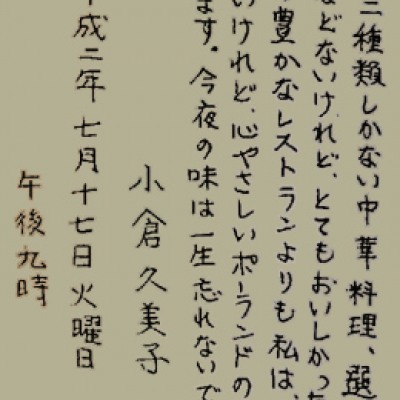 種類しかない中華料理、選
などないけれど、とてもおいしかった
豊かなレストランよりも私は、
いけれど、心やさしいポーランドの
ます。今夜の味は一生忘れないで
小倉久美子
平成二年七月十七日火曜日
午後九時